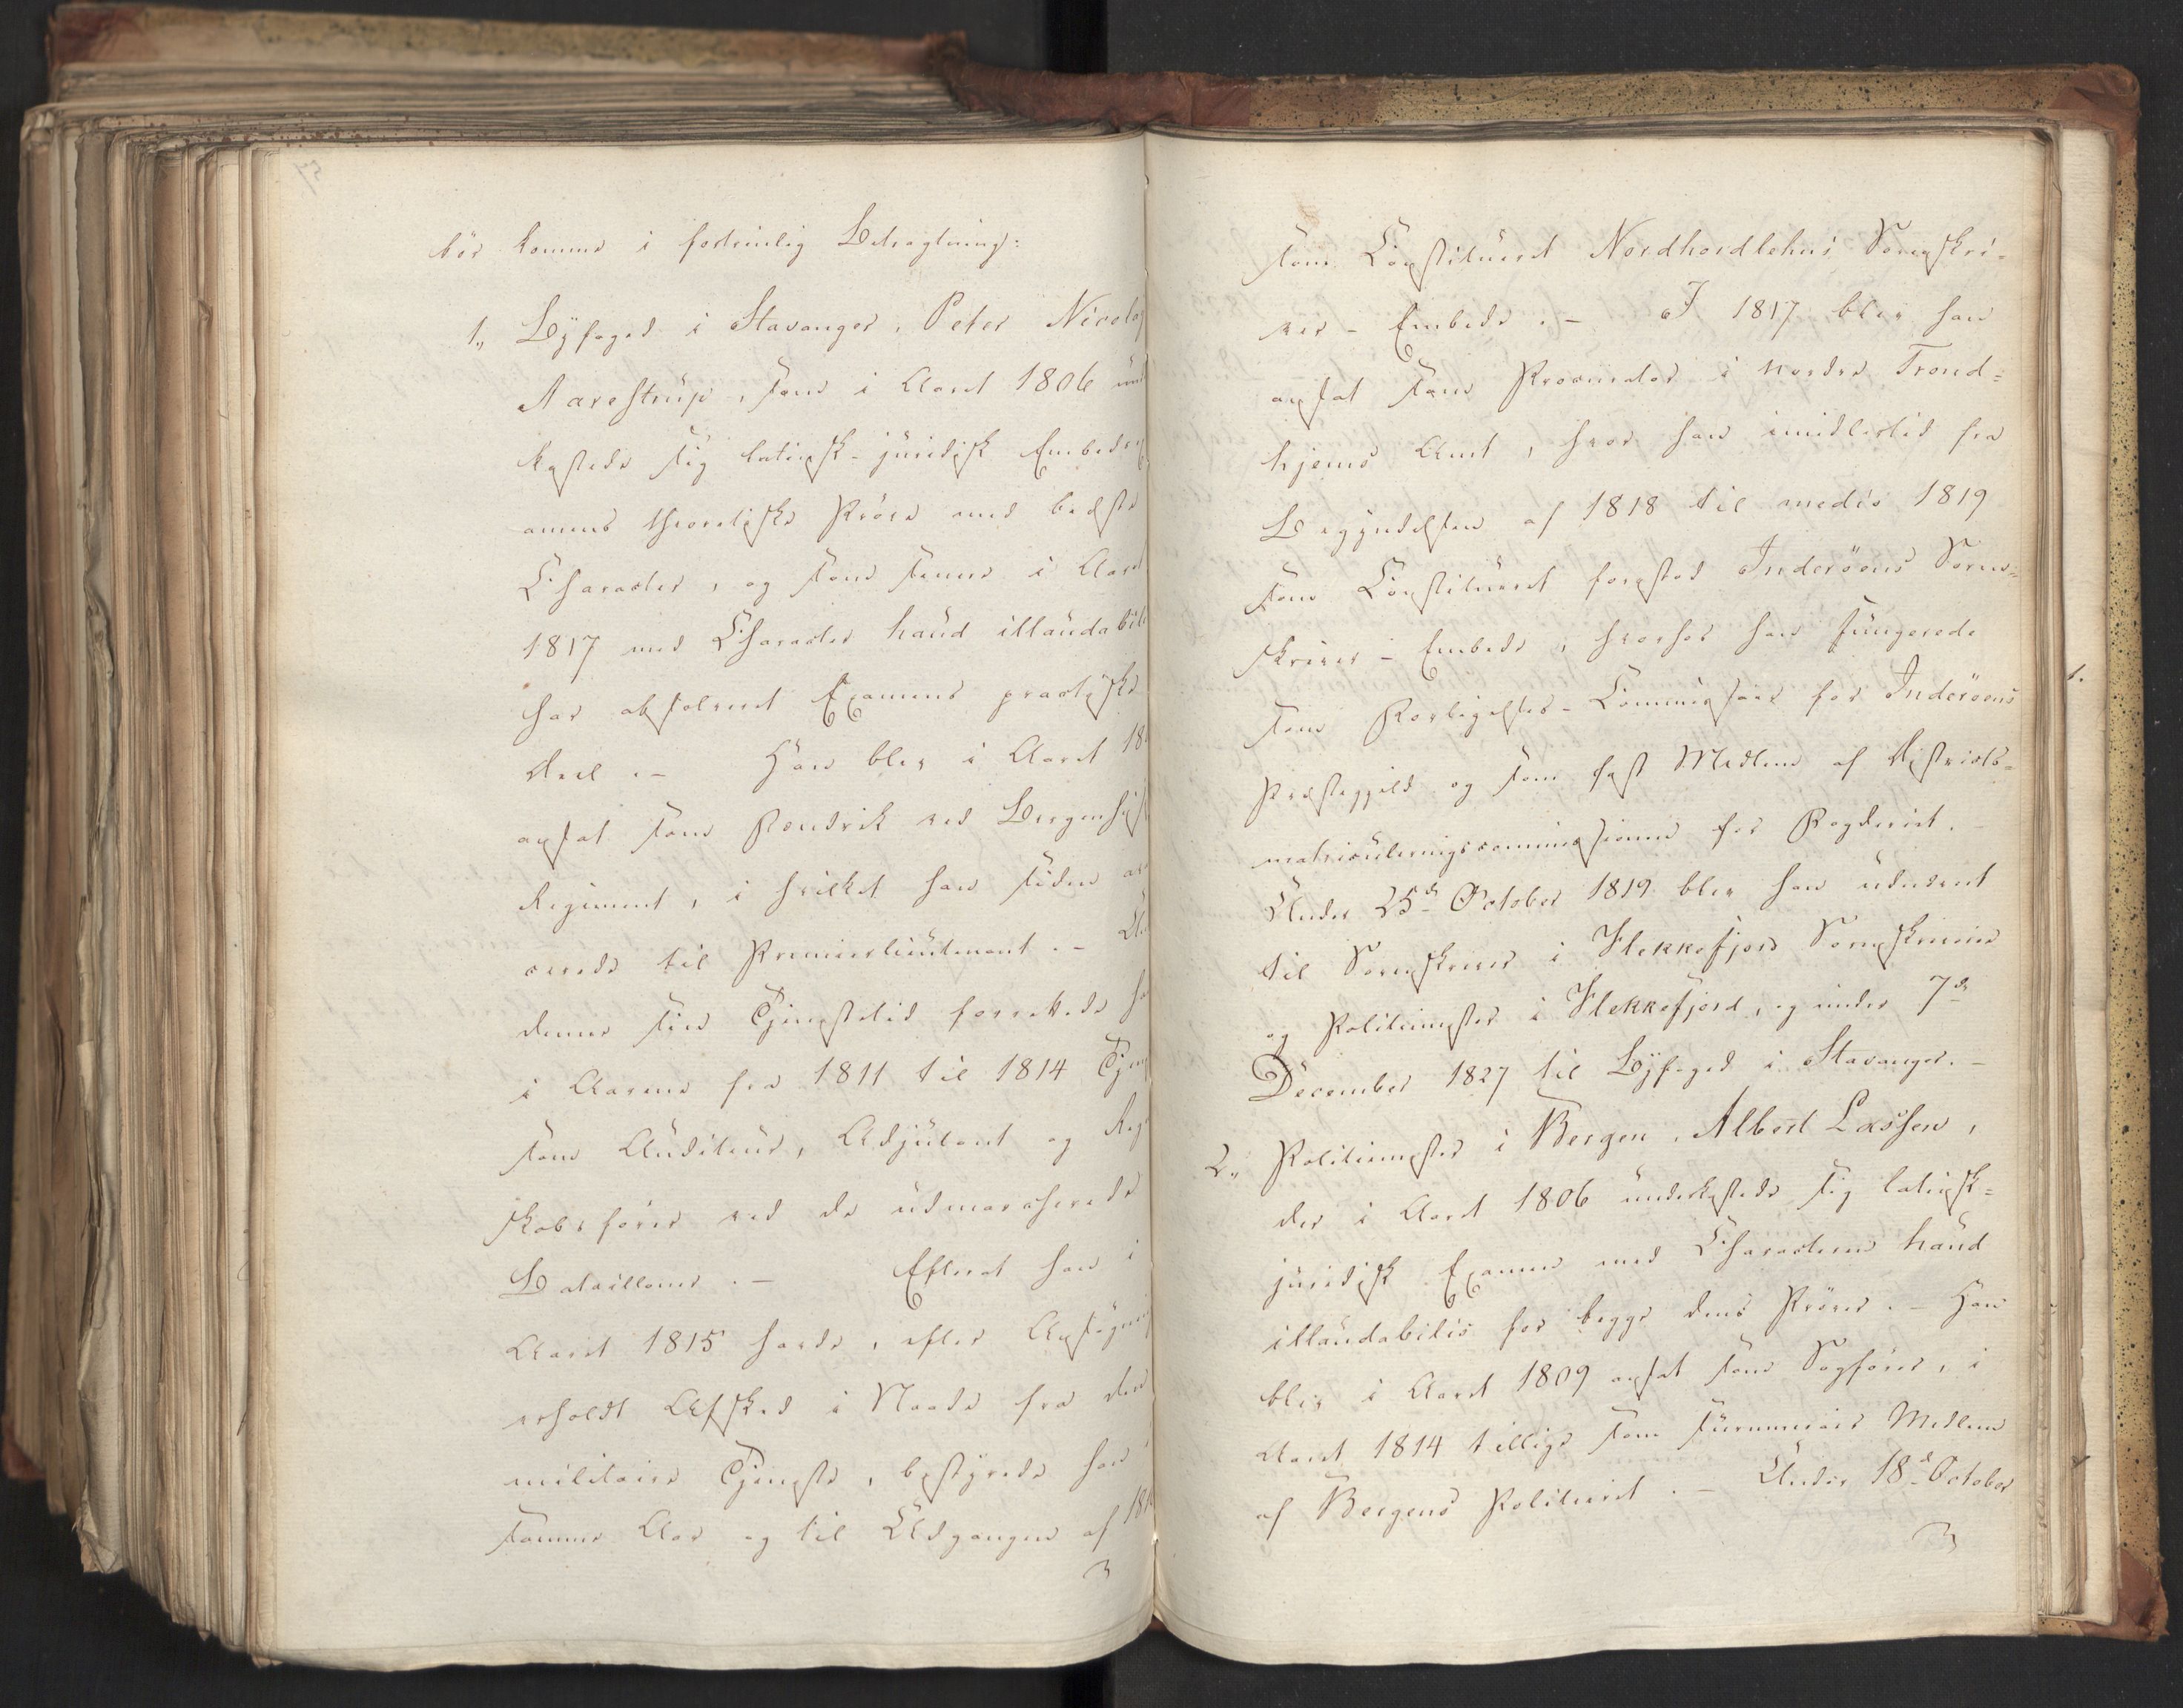 bör komme i fortrinlig Betragtning:
1., Byfoged i Stavanger, Peter Nicolay
Aarestrup, som i Aaret 1806 und
kastede sig latinsk-juridisk Embedsex
amens theoretiske Pröve med bedste
Charakter, og som senere i Aaret
1817 med Charakter haud illaudabilis
har absolveret Examens practiske
Deel .- Han blev i Aaret 18
ansat som Fendrik ved Bergenhusiske
Regiment, i hvilket han siden av
cerede til Premierlieutenant .- Un
denne sin Tjenestetid forrettede ha
i Aarene fra 1811 til 1814 Tjen
som Auditeur, Adjutant og Reg
skabsförer ved de udmarcherede
Batailloner .- Efterat han i
Aaret 1815 havde, efter Ansögning
erholdt Afsked i Naade fra den
militaire Tjeneste, bestyrede han i
samme Aar og til Udgangen af 181
som Constitueret Nordhordlehns Sorenskri-
ver-Embede .- I 1817 blev han
ansat som Procurator i Nordre Trond=
hjems Amt, hvor han imidlertid fra
Begyndelsen af 1818 til medio 1819
som Constitueret forestod Inderöens Soren=
skriver-Embede, hvorhos han fungerede
som Forligelses-Commissair for Inderöens
Præstegjeld og som fast Medlem af Districts-
matriculeringscommissionen for Fogderiet.-
Under 25de October 1819 blev han udnævnt
til Sorenskriver i Flekkefjord Sorenskriverie
og Politimester i Flekkefjord, og under 7de
December 1827 til Byfoged i Stavanger.-
2., Politimester i Bergen, Albert Lassen,
der i Aaret 1806 underkastede sig latinsk=
juridisk Examen med Characteren haud
illaudabilis for begge dens Pröver .- Han
blev i Aaret 1809 ansat som Sagförer, i
Aaret 1814 tillige som surnumerair Medlem
af Bergens Politieret .- Under 18de October